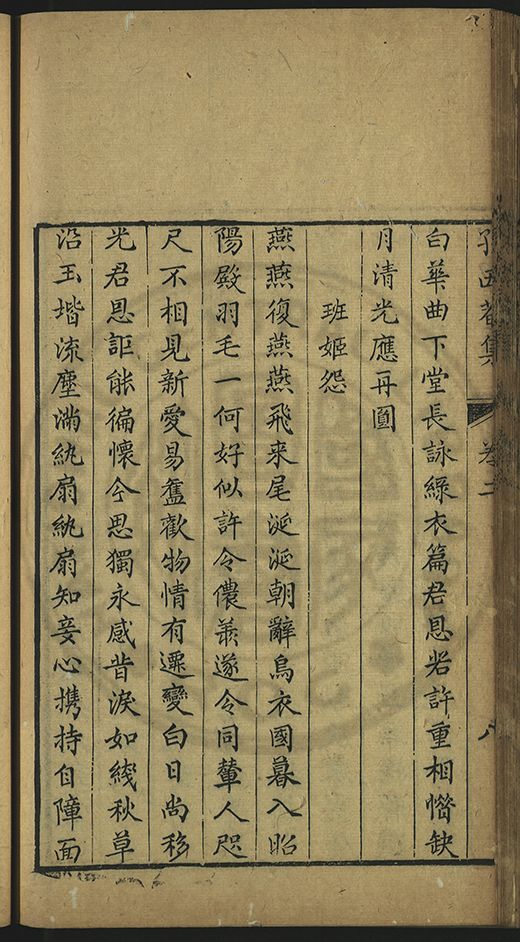 孫西菴集 卷二 八
白華曲下堂長詠綠衣篇君恩若許重相憐缺
月清光應再圓
班姬怨
燕燕復燕燕飛来尾涎涎朝辭烏衣國暮入昭
陽殿羽毛一何好似許令儂羨遂令同輦人咫
尺不相見新愛易舊歡物情有遷變白日尚移
光君恩詎能徧懷今思獨永感昔淚如綫秋草
沿玉堦流塵滿紈扇紈扇知妾心携持自障面